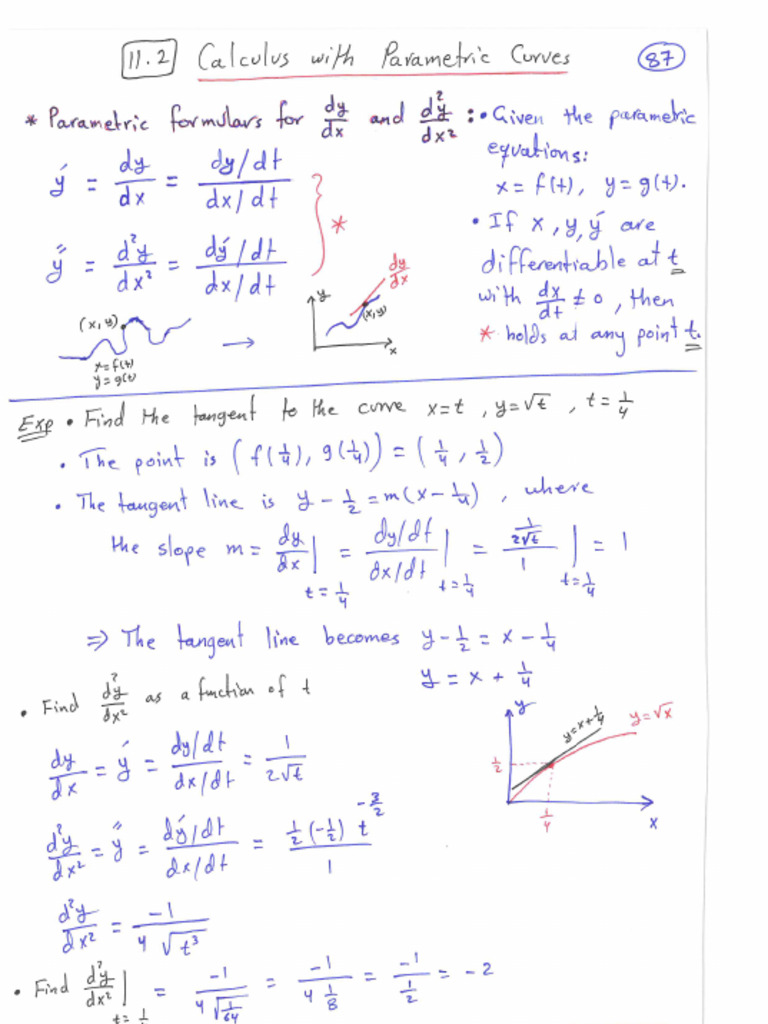 11.2 Calculus with Parametric Curves 87
* Parametric formulars for dy/dx and d²y/dx² :
ý = dy/dx = (dy/dt)/(dx/dt)
y̋ = d²y/dx² = (dý/dt)/(dx/dt)
*
• Given the parametric
equations:
x = f(t), y = g(t).
• If x, y, ý are
differentiable at t
with dx/dt ≠ 0, then
* holds at any point t.
(x,y)
x = f(t)
y = g(t)
→
y
dy/dx
(x,y)
x
Exp • Find the tangent to the curve x = t, y = √t, t = 1/4
• The point is (f(1/4), g(1/4)) = (1/4, 1/2)
• The tangent line is y - 1/2 = m(x - 1/4), where
the slope m = dy/dx | t = 1/4 = (dy/dt)/(dx/dt) | t = 1/4 = (1/(2√t))/1 | t = 1/4 = 1
⇒ The tangent line becomes y - 1/2 = x - 1/4
y = x + 1/4
• Find d²y/dx² as a function of t
dy/dx = ý = (dy/dt)/(dx/dt) = 1/(2√t)
d²y/dx² = y̋ = (dý/dt)/(dx/dt) = (1/2 (-1/2) t^(-3/2))/1
d²y/dx² = -1/(4√t³)
y
y = x + 1/4
y = √x
1/2
1/4
x
• Find d²y/dx² | = -1/(4√(1/64)) = -1/(4 1/8) = -1/(1/2) = -2